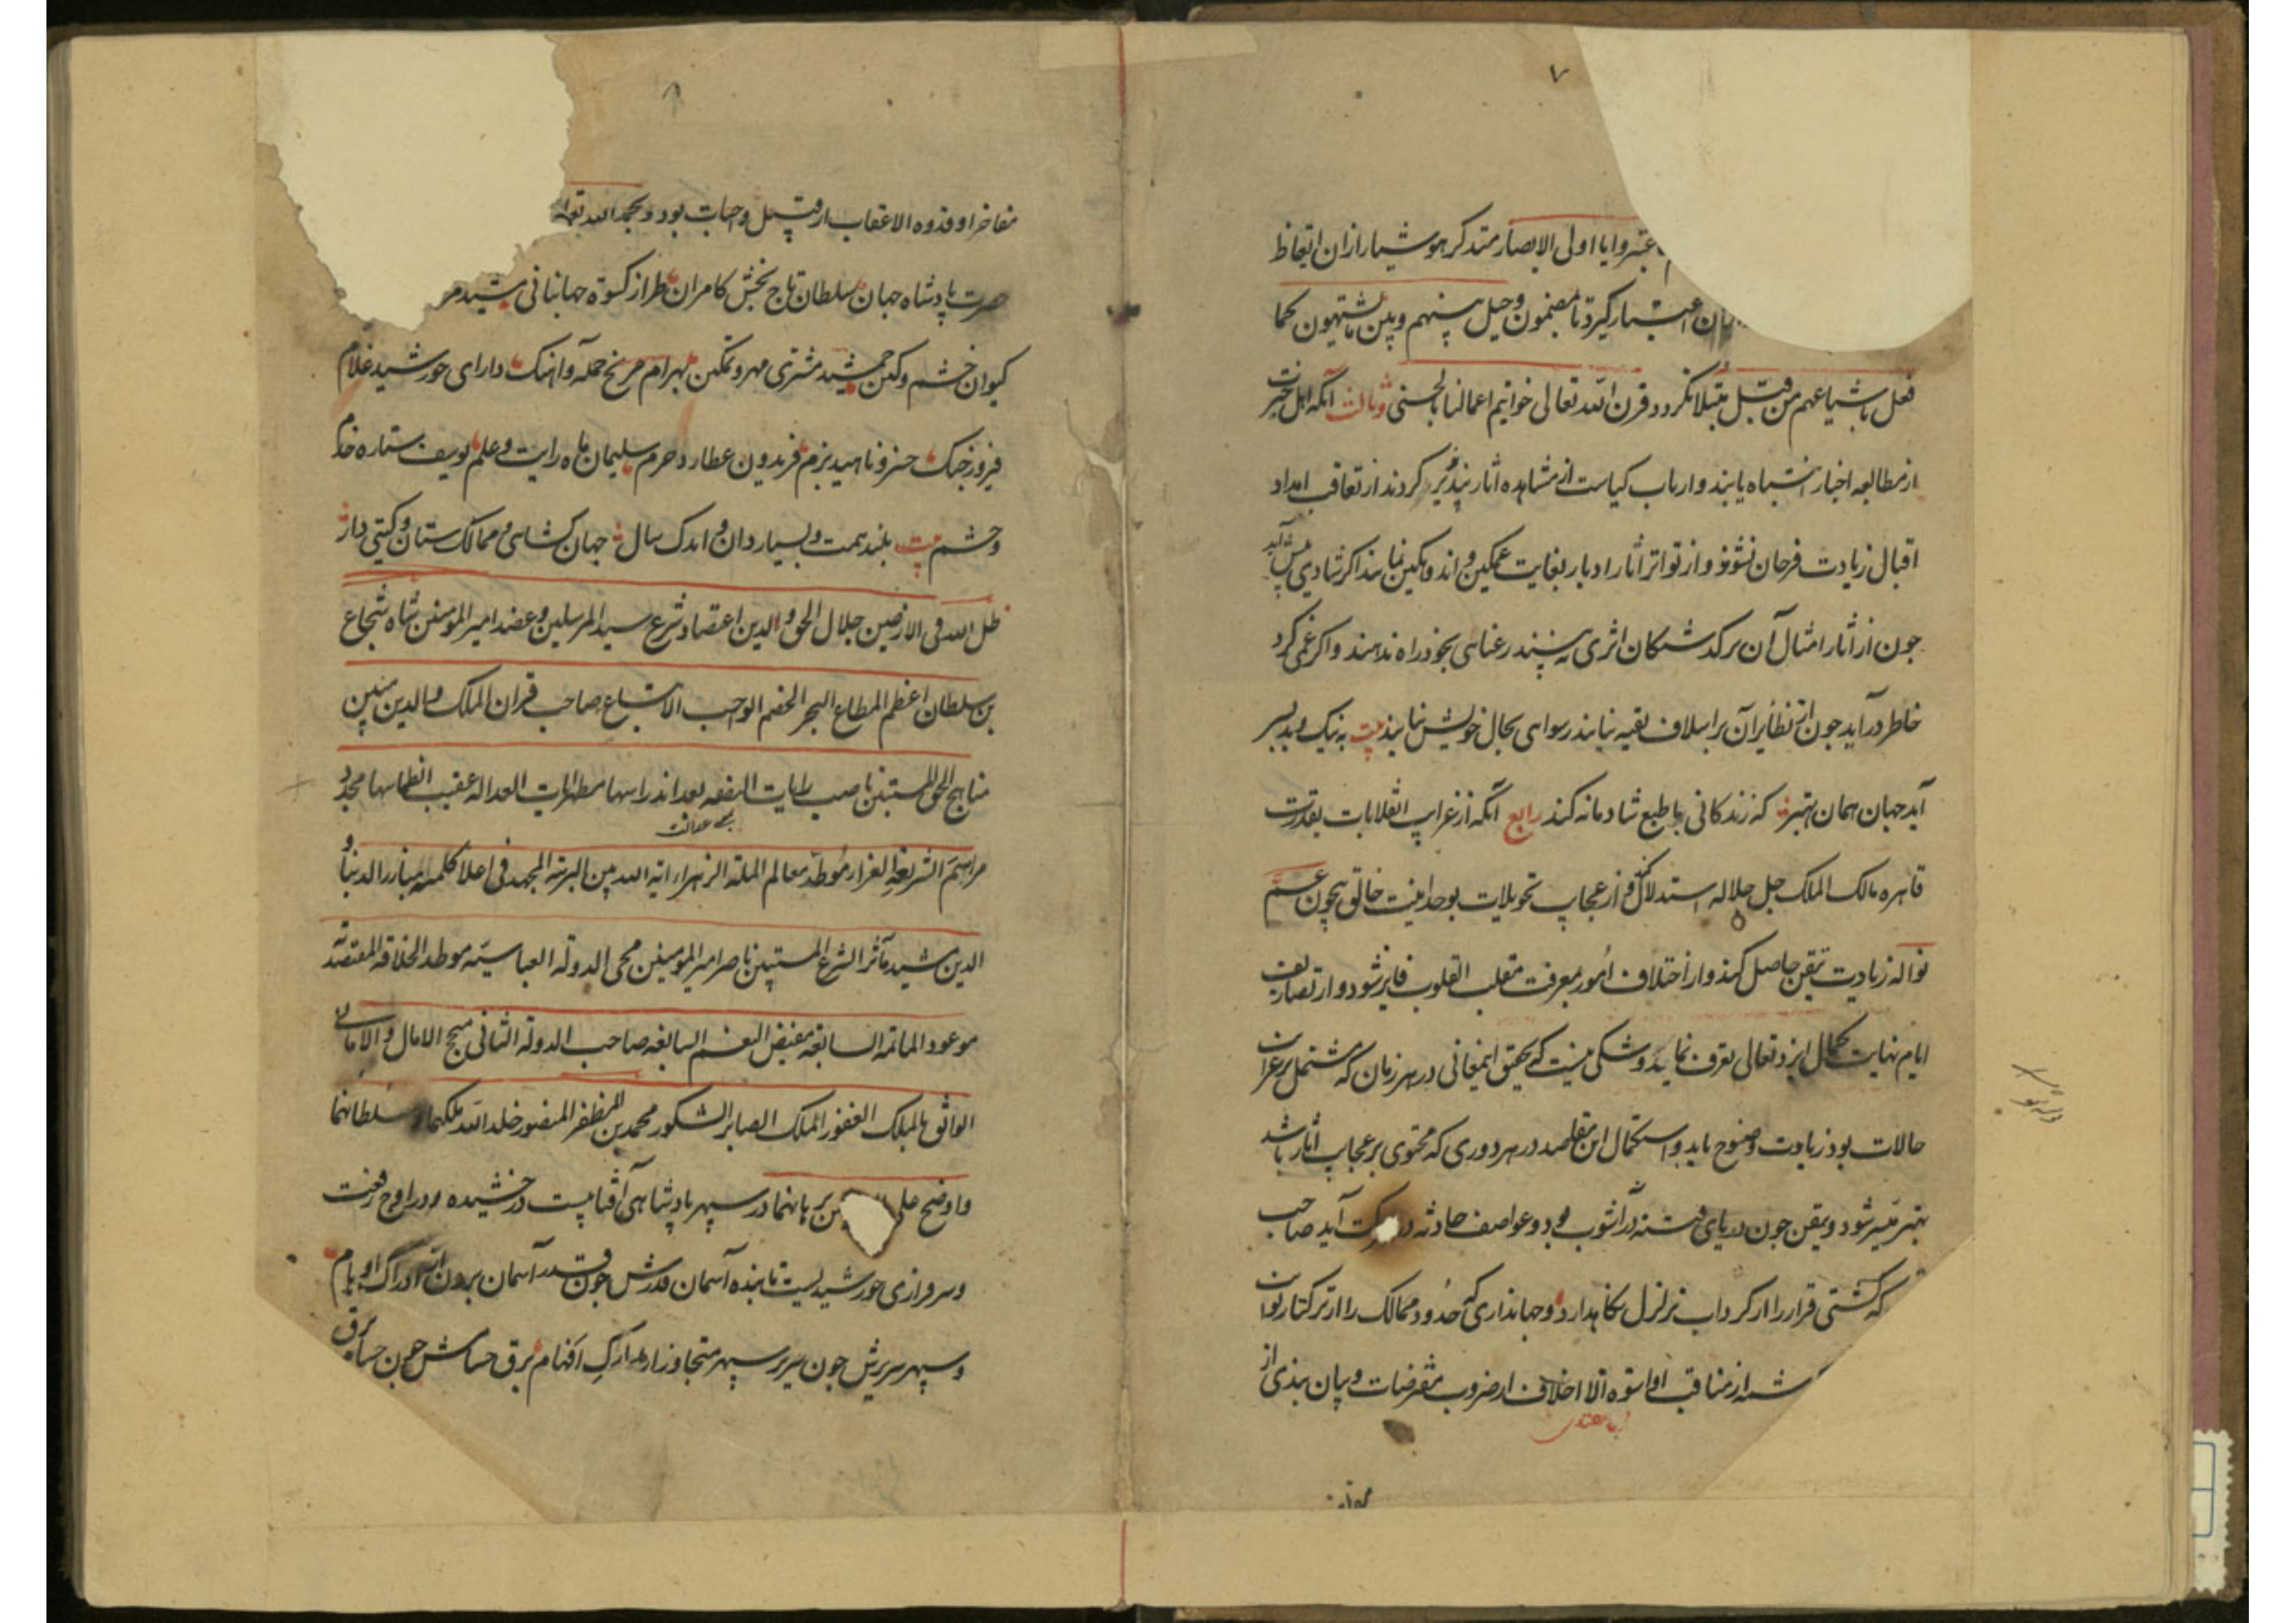 ۷
عتبروا یا اولی الابصار متذکر هوشیار ازان اتعاظ
اعتبار گیرد تا مضمون وحیل بینهم وبین ما یشتهون کما
فعل باشیاعهم من قبل مبتلا نکردد قرن الله تعالی خواتیم اعمالنا بالحسنی وثالث آنکه اهل خبرت
از مطالعه اخبار انتباه یابند و ارباب کیاست از مشاهده آثار پندپذیر کردند از تعاقب امداد
اقبال زیادت فرحان نشوند و از تواتر آثار ادبار بغایت غمکین و اندوهکین نباشند اکر شادی پیش آید
جون از آثار امثال آن بر کذشتکان اثری نه بینند رعنایی بخود راه ندهند و اکر غمی کرد
خاطر درآید جون از نظایر آن بر اسلاف بقیه نیابند رسوایی بحال خویش نیابند بیت به نیک و بد بسر
آید جهان همان بهتر که زندکانی با طبع شادمانه کند رابع آنکه از غرایب انقلابات بقدرت
قاهره مالک الملک جل جلاله استدلال کند و از عجایب تحویلات بوحدانیت خالق بیچون عم
نواله زیادت تیقن حاصل کند و از اختلاف امور بمعرفت مقلب القلوب فایز شود و از تصاریف
ایام نهایت کمال ایزد تعالی تعرف نماید و شکی نیست که تحقیق این معانی در هر زمان که مشتمل بر غرایب
حالات بود زیادت وضوح یابد و استکمال این مقاصد در هر دوری که محتوی بر عجایب آثار باشد
بهتر میسر شود و تیقن جون دریای فتنه در آشوب بود و عواصف حادثه در حرکت آید صاحب
که کشتی قرار را از کرداب تزلزل نکاهدارد و جهانداری که حدود ممالک را از ترکتاز نوایب
از مناقب او اسوه الاخلاف از ضروب مفترضات و بیان نبذی از
مفاخر او قدوه الاعقاب از قبیل واجبات بود و بحمد الله تعالی
حضرت پادشاه جهان سلطان تاج بخش کامران طراز کسوه جهانبانی
کیوان خشم و کین جمشید مشتری مهر و تمکین بهرام مریخ حمله و اهنک دارای خورشید غلام
فیروز جنک خسرو ناهید بزم فریدون عطارد حرم سلیمان ماه رایت و علم یوسف ستاره خدم
وحشم بیت بلند همت و بسیار دان و اندک سال جهان کشای و ممالک ستان و کیتی دار
ظل الله فی الارضین جلال الحق والدین اعتضاد شرع سید المرسلین وعضد امیر المومنین شاه شجاع
بن سلطان اعظم المطاع البحر الخضم الواجب الاتباع صاحب قران الملک والدین مبین
مناهج الحق المستبین ناصب رایات النصفه بعد اندراسها مظهر آیات العداله عقیب انطماسها مجدد
مراسم الشریعه الغراء موطد معالم المله الزهراء آیه الله بین البریه المجهد فی اعلاء کلمته مبارز الدنیا و
الدین مشید مآثر الشرع المستبین ناصر امیر المومنین محی الدوله العباسیه موطد الخلافه المعتضدیه
موعود المائه السابعه مفیض النعم السابغه صاحب الدوله الثانی منجح الامال و الامانی
الواثق بالملک الغفور الملک الصابر الشکور محمد بن المظفر المنصور خلد الله ملکهما و سلطانهما
واوضح علی برهانهما در سپهر پادشاهی آفتابیست درخشیده و در اوج رفعت
و سرفرازی خورشیدیست تابنده آسمان قدرش جون قدر آسمان بیرون از ادراک اوهام
و سپهر سریرش جون سریر سپهر متجاوز از مدارک افهام برق حسامش جون حسام برق